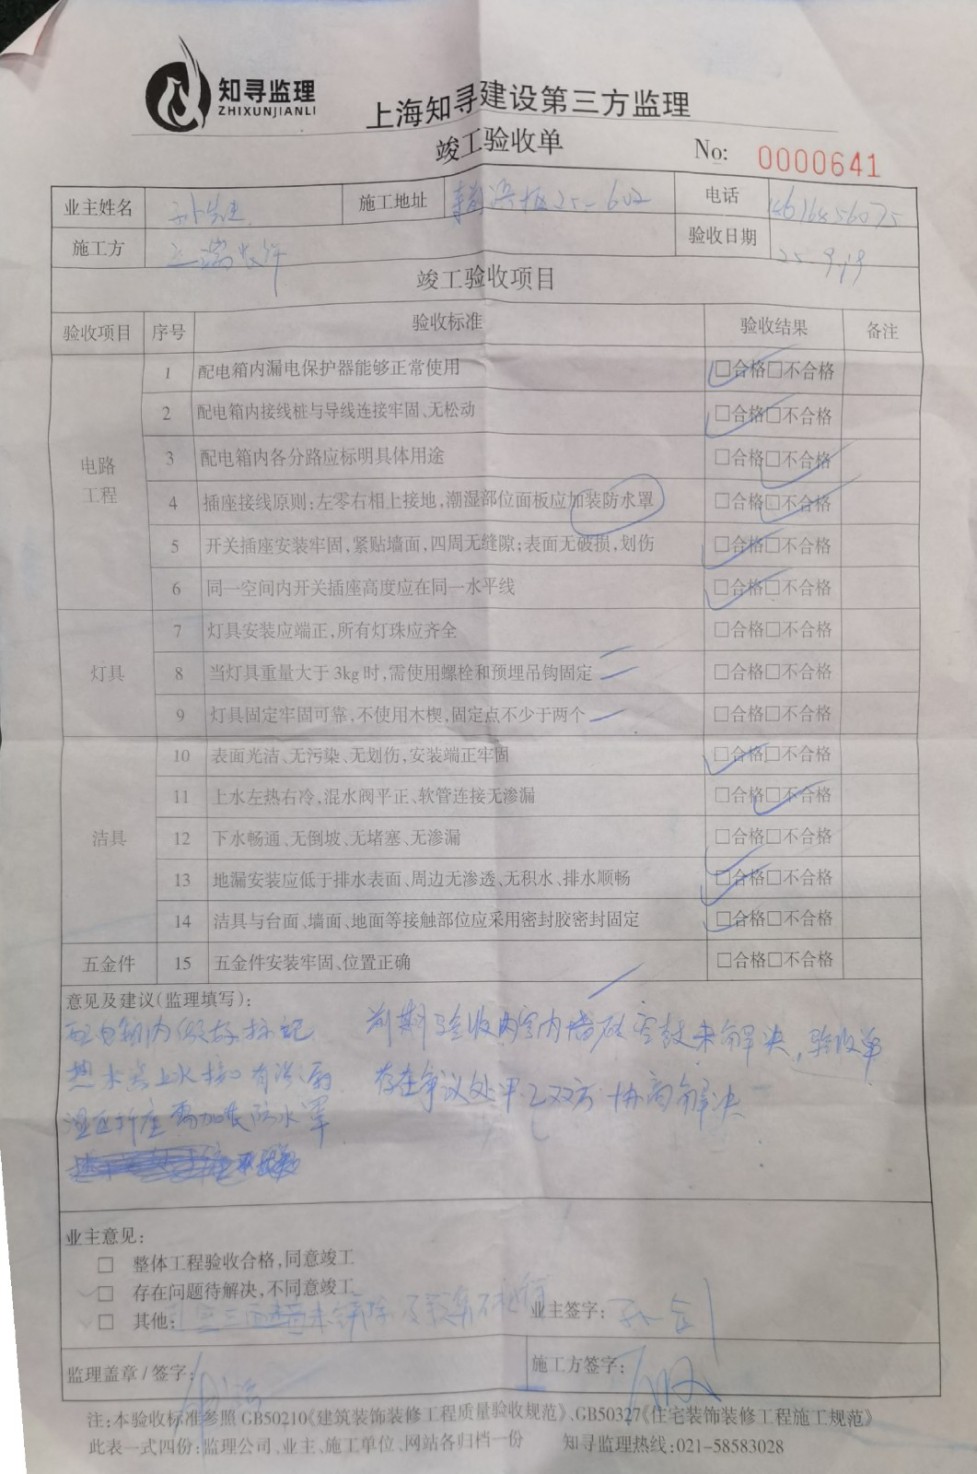 知寻监理
ZHIXUNJIANLI
上海知寻建设第三方监理
竣工验收单
No: 0000641
业主姓名 施工地址 25-602 电话
施工方 验收日期 25-9-19
竣工验收项目
验收项目 序号 验收标准 验收结果 备注
电路工程
1 配电箱内漏电保护器能够正常使用 □合格□不合格
2 配电箱内接线桩与导线连接牢固、无松动 □合格□不合格
3 配电箱内各分路应标明具体用途 □合格□不合格
4 插座接线原则;左零右相上接地,潮湿部位面板应加装防水罩 □合格□不合格
5 开关插座安装牢固,紧贴墙面,四周无缝隙;表面无破损,划伤 □合格□不合格
6 同一空间内开关插座高度应在同一水平线 □合格□不合格
灯具
7 灯具安装应端正,所有灯珠应齐全 □合格□不合格
8 当灯具重量大于3kg时,需使用螺栓和预埋吊钩固定 □合格□不合格
9 灯具固定牢固可靠,不使用木楔,固定点不少于两个 □合格□不合格
洁具
10 表面光洁、无污染、无划伤,安装端正牢固 □合格□不合格
11 上水左热右冷,混水阀平正、软管连接无渗漏 □合格□不合格
12 下水畅通、无倒坡、无堵塞、无渗漏 □合格□不合格
13 地漏安装应低于排水表面、周边无渗透、无积水、排水顺畅 □合格□不合格
14 洁具与台面、墙面、地面等接触部位应采用密封胶密封固定 □合格□不合格
五金件 15 五金件安装牢固、位置正确 □合格□不合格
意见及建议(监理填写):
配电箱内做好标记 前期验收内墙砖空鼓未解决,验收单
热水器上水接口有渗漏 存在争议处甲乙双方协商解决
湿区插座需加装防水罩
业主意见:
□ 整体工程验收合格,同意竣工
□ 存在问题待解决,不同意竣工
□ 其他: 业主签字:
监理盖章/签字: 施工方签字:
注:本验收标准参照GB50210《建筑装饰装修工程质量验收规范》、GB50327《住宅装饰装修工程施工规范》
此表一式四份:监理公司、业主、施工单位、网站各归档一份 知寻监理热线:021-58583028